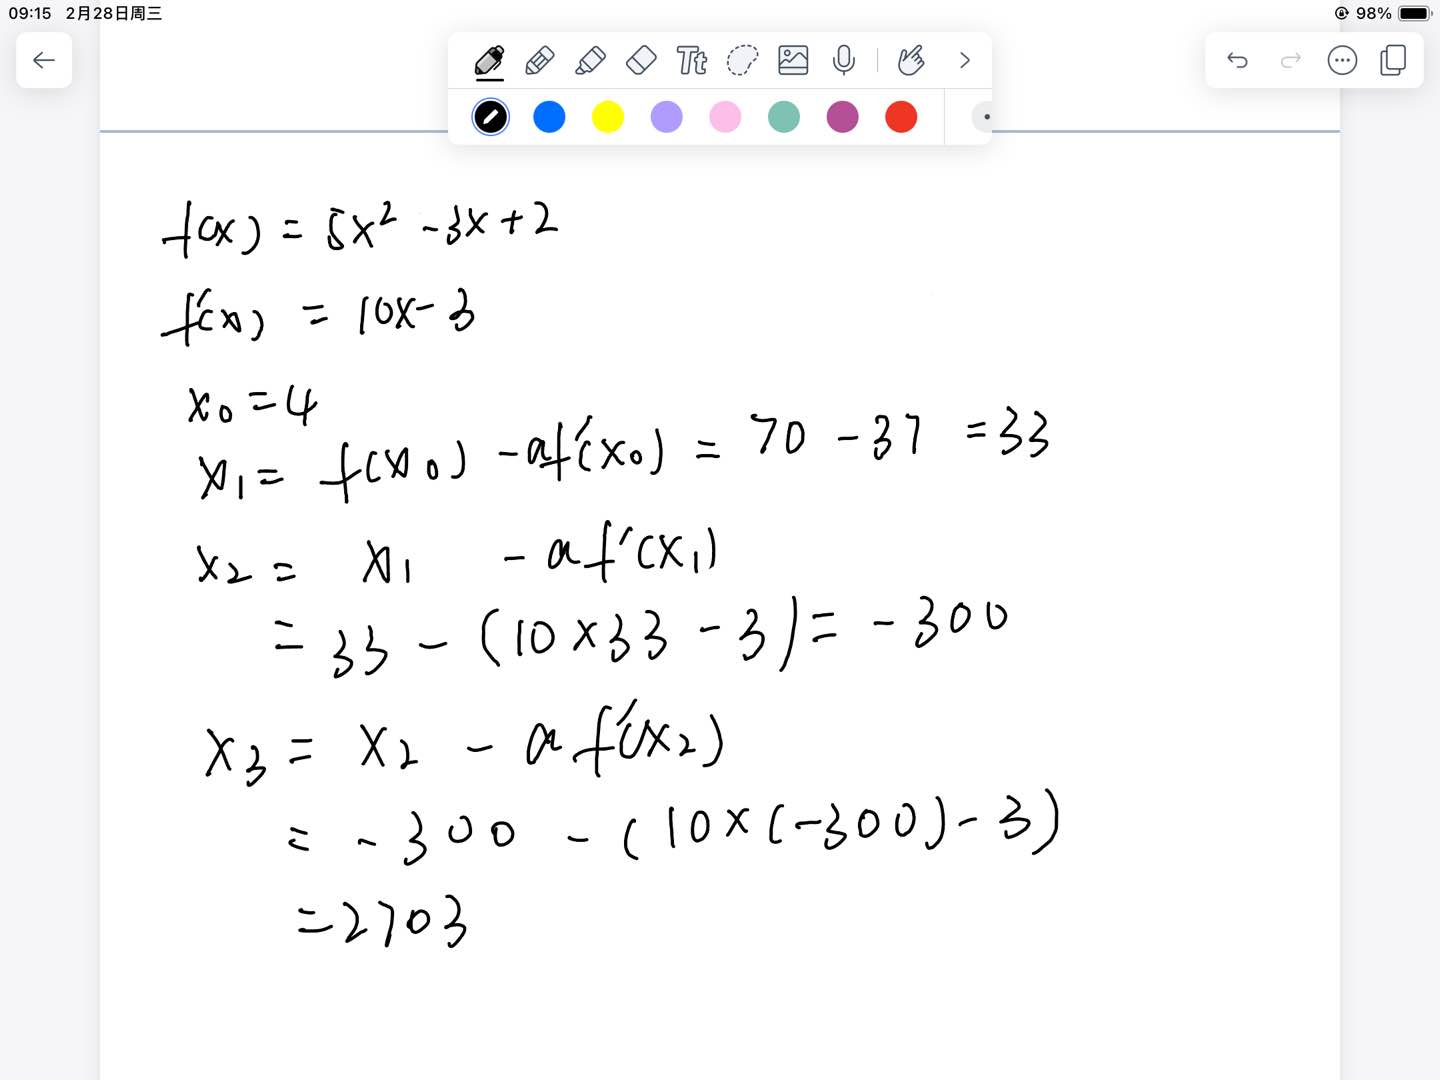 09:15 2月28日周三
98%
Tt
f(x) = 5x² -3x+2
f'(x) = 10x-3
x₀=4
x₁= f(x₀) -af'(x₀) = 70 -37 =33
x₂= x₁ - af'(x₁)
= 33 - (10×33 -3)= -300
x₃= x₂ - af'(x₂)
= -300 - (10×(-300)-3)
=2703